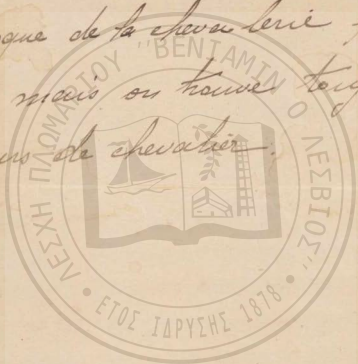 que de la chevalerie
mais on trouve
de chevalier.
ΛΕΣΧΗ ΠΛΩΜΑΡΙΟΥ "ΒΕΝΙΑΜΙΝ Ο ΛΕΣΒΙΟΣ"
• ΕΤΟΣ ΙΔΡΥΣΗΣ 1878 •